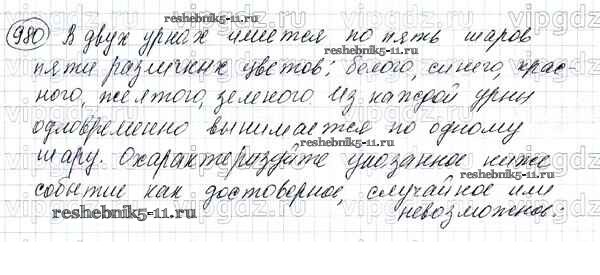 980 В двух урнах имеется по пять шаров
пяти различных цветов; белого, синего, крас
ного, желтого, зеленого. Из каждой урны
одновременно вынимается по одному
шару. Охарактеризуйте указанное ниже
событие как достоверное, случайное или
невозможное:
reshebnik5-11.ru
reshebnik5-11.ru
reshebnik5-11.ru